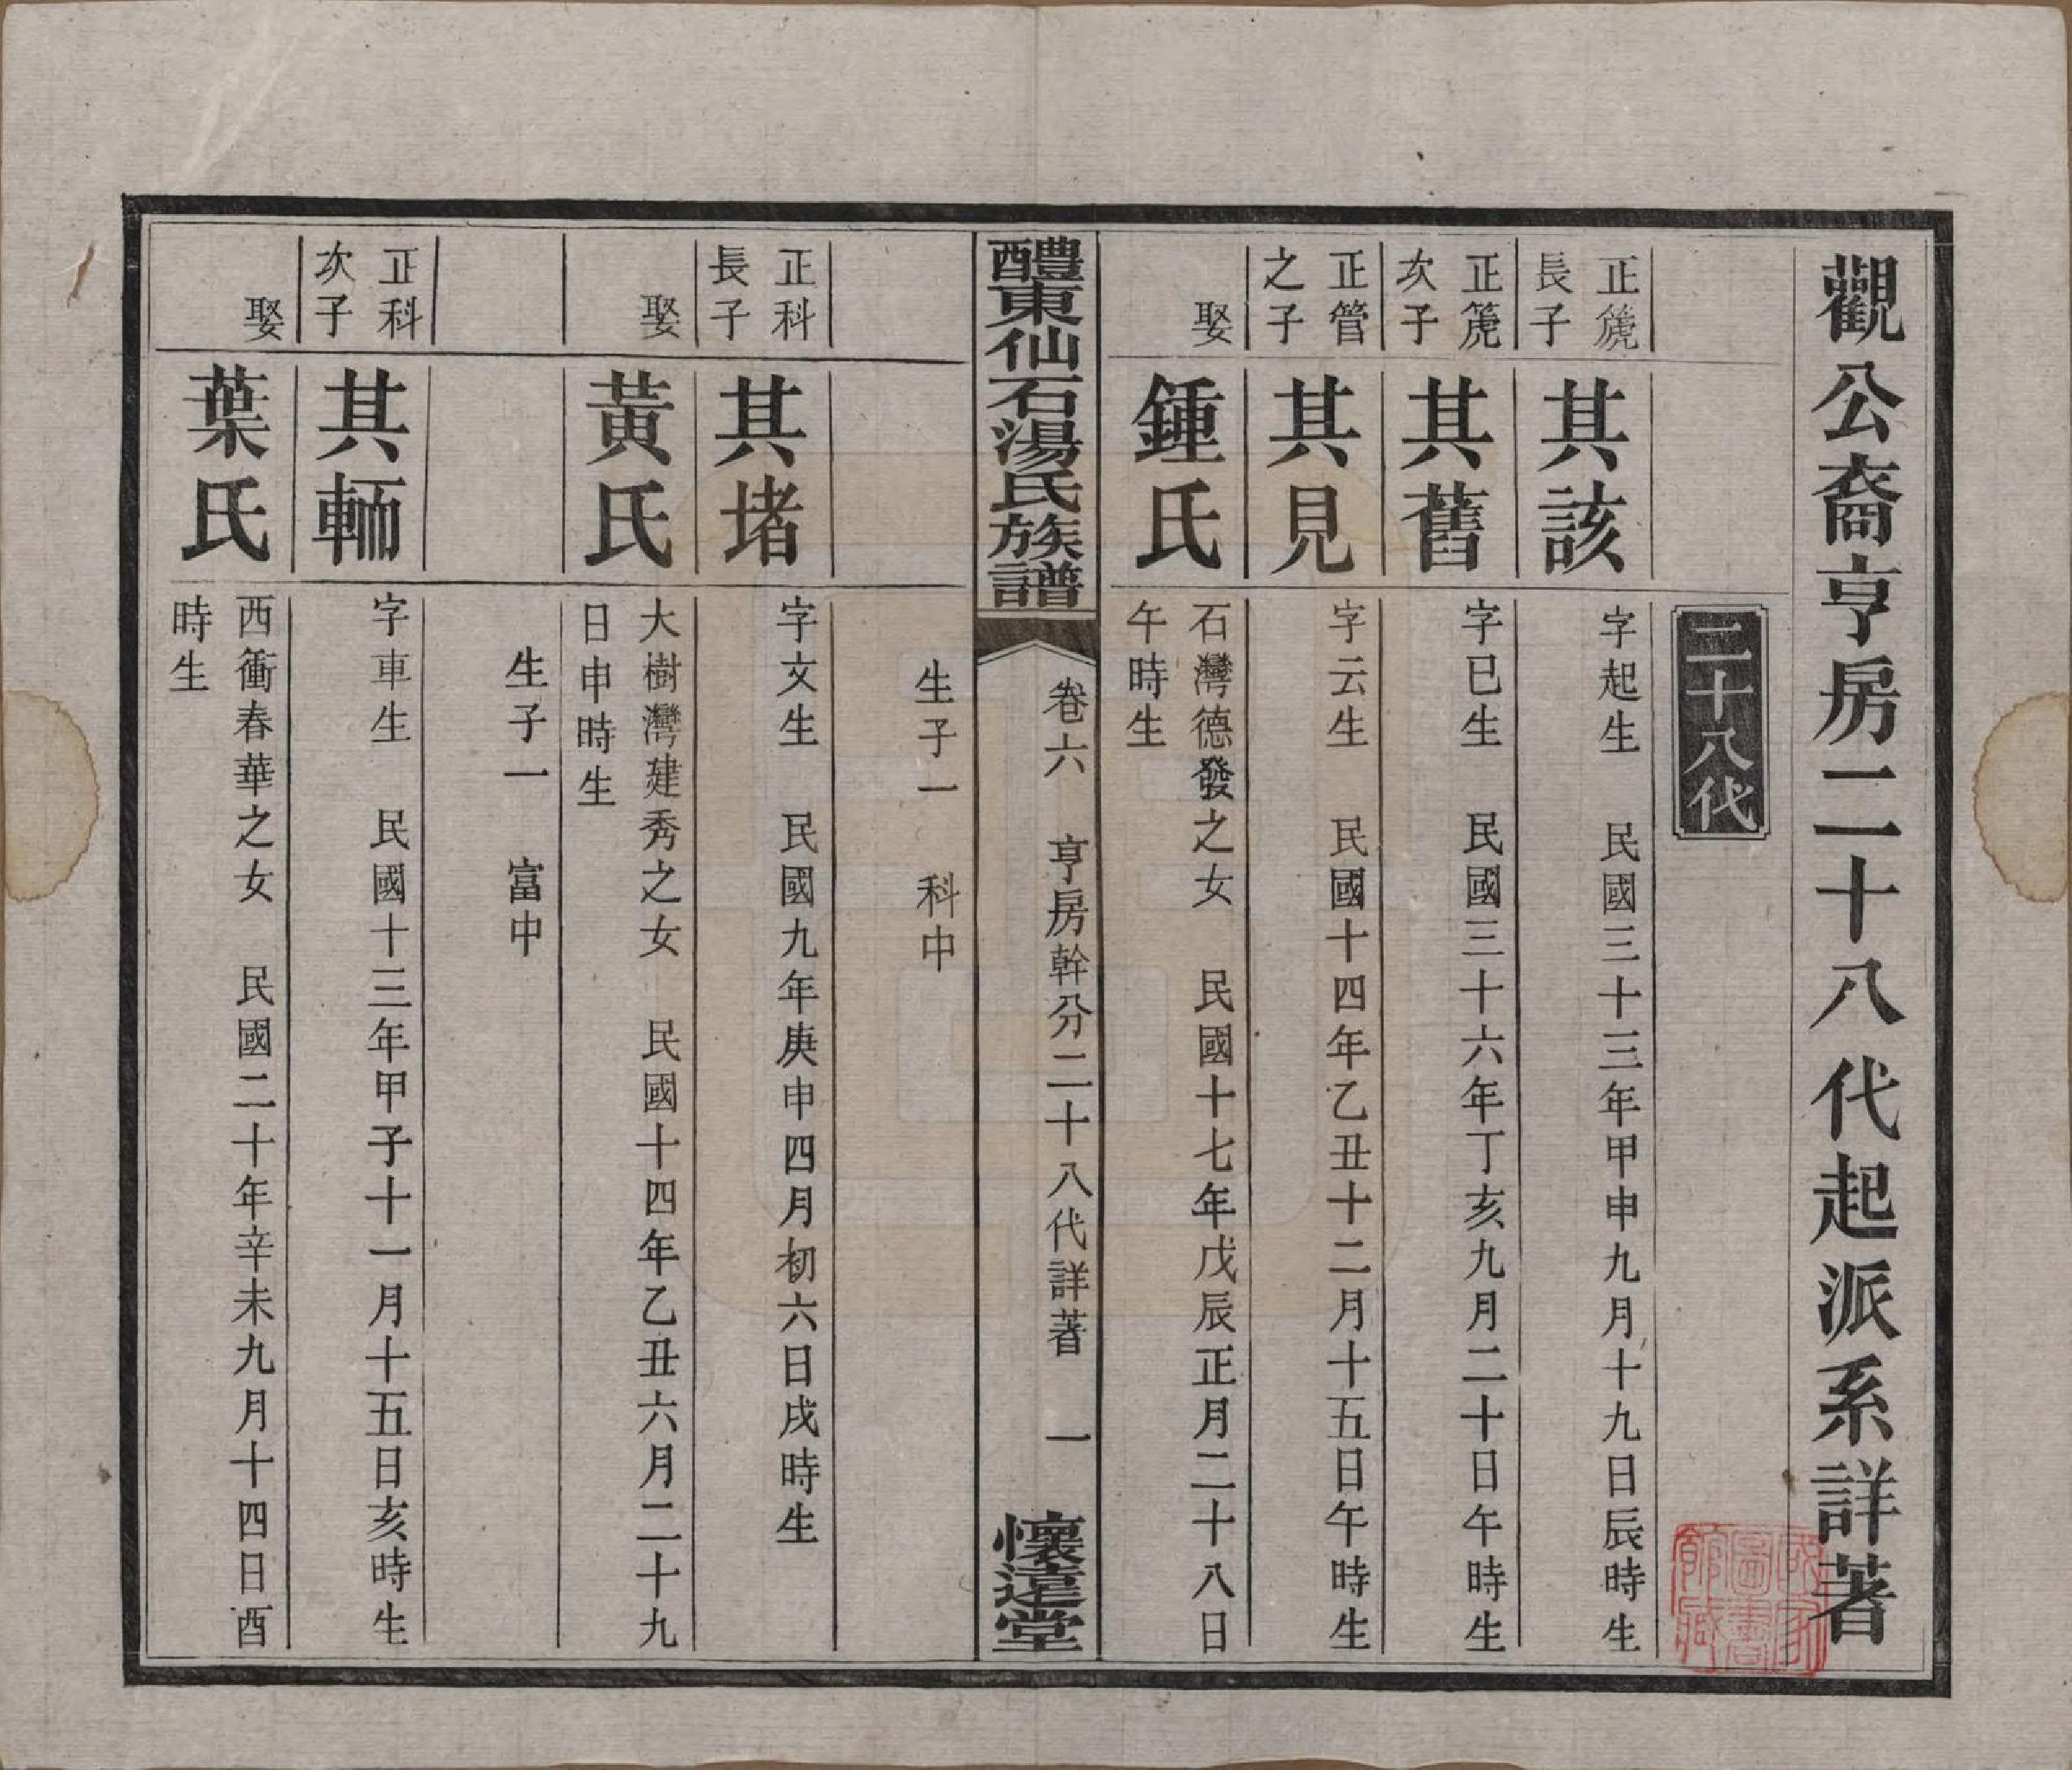 觀公裔亨房二十八代起派系詳著
二十八代
正箎
長子
其該
字起生 民國三十三年甲申九月十九日辰時生
正箎
次子
其舊
字已生 民國三十六年丁亥九月二十日午時生
正管
之子
其見
字云生 民國十四年乙丑十二月十五日午時生
娶
鍾氏
石灣德發之女 民國十七年戊辰正月二十八日
午時生
醴東仙石湯氏族譜
卷六 亨房幹分二十八代詳著 一
懷遠堂
生子一 科中
正科
長子
其堵
字文生 民國九年庚申四月初六日戌時生
娶
黃氏
大樹灣建秀之女 民國十四年乙丑六月二十九
日申時生
生子一 富中
正科
次子
其輀
字車生 民國十三年甲子十一月十五日亥時生
娶
葉氏
西衝春華之女 民國二十年辛未九月十四日酉
時生
國家
圖書
館藏